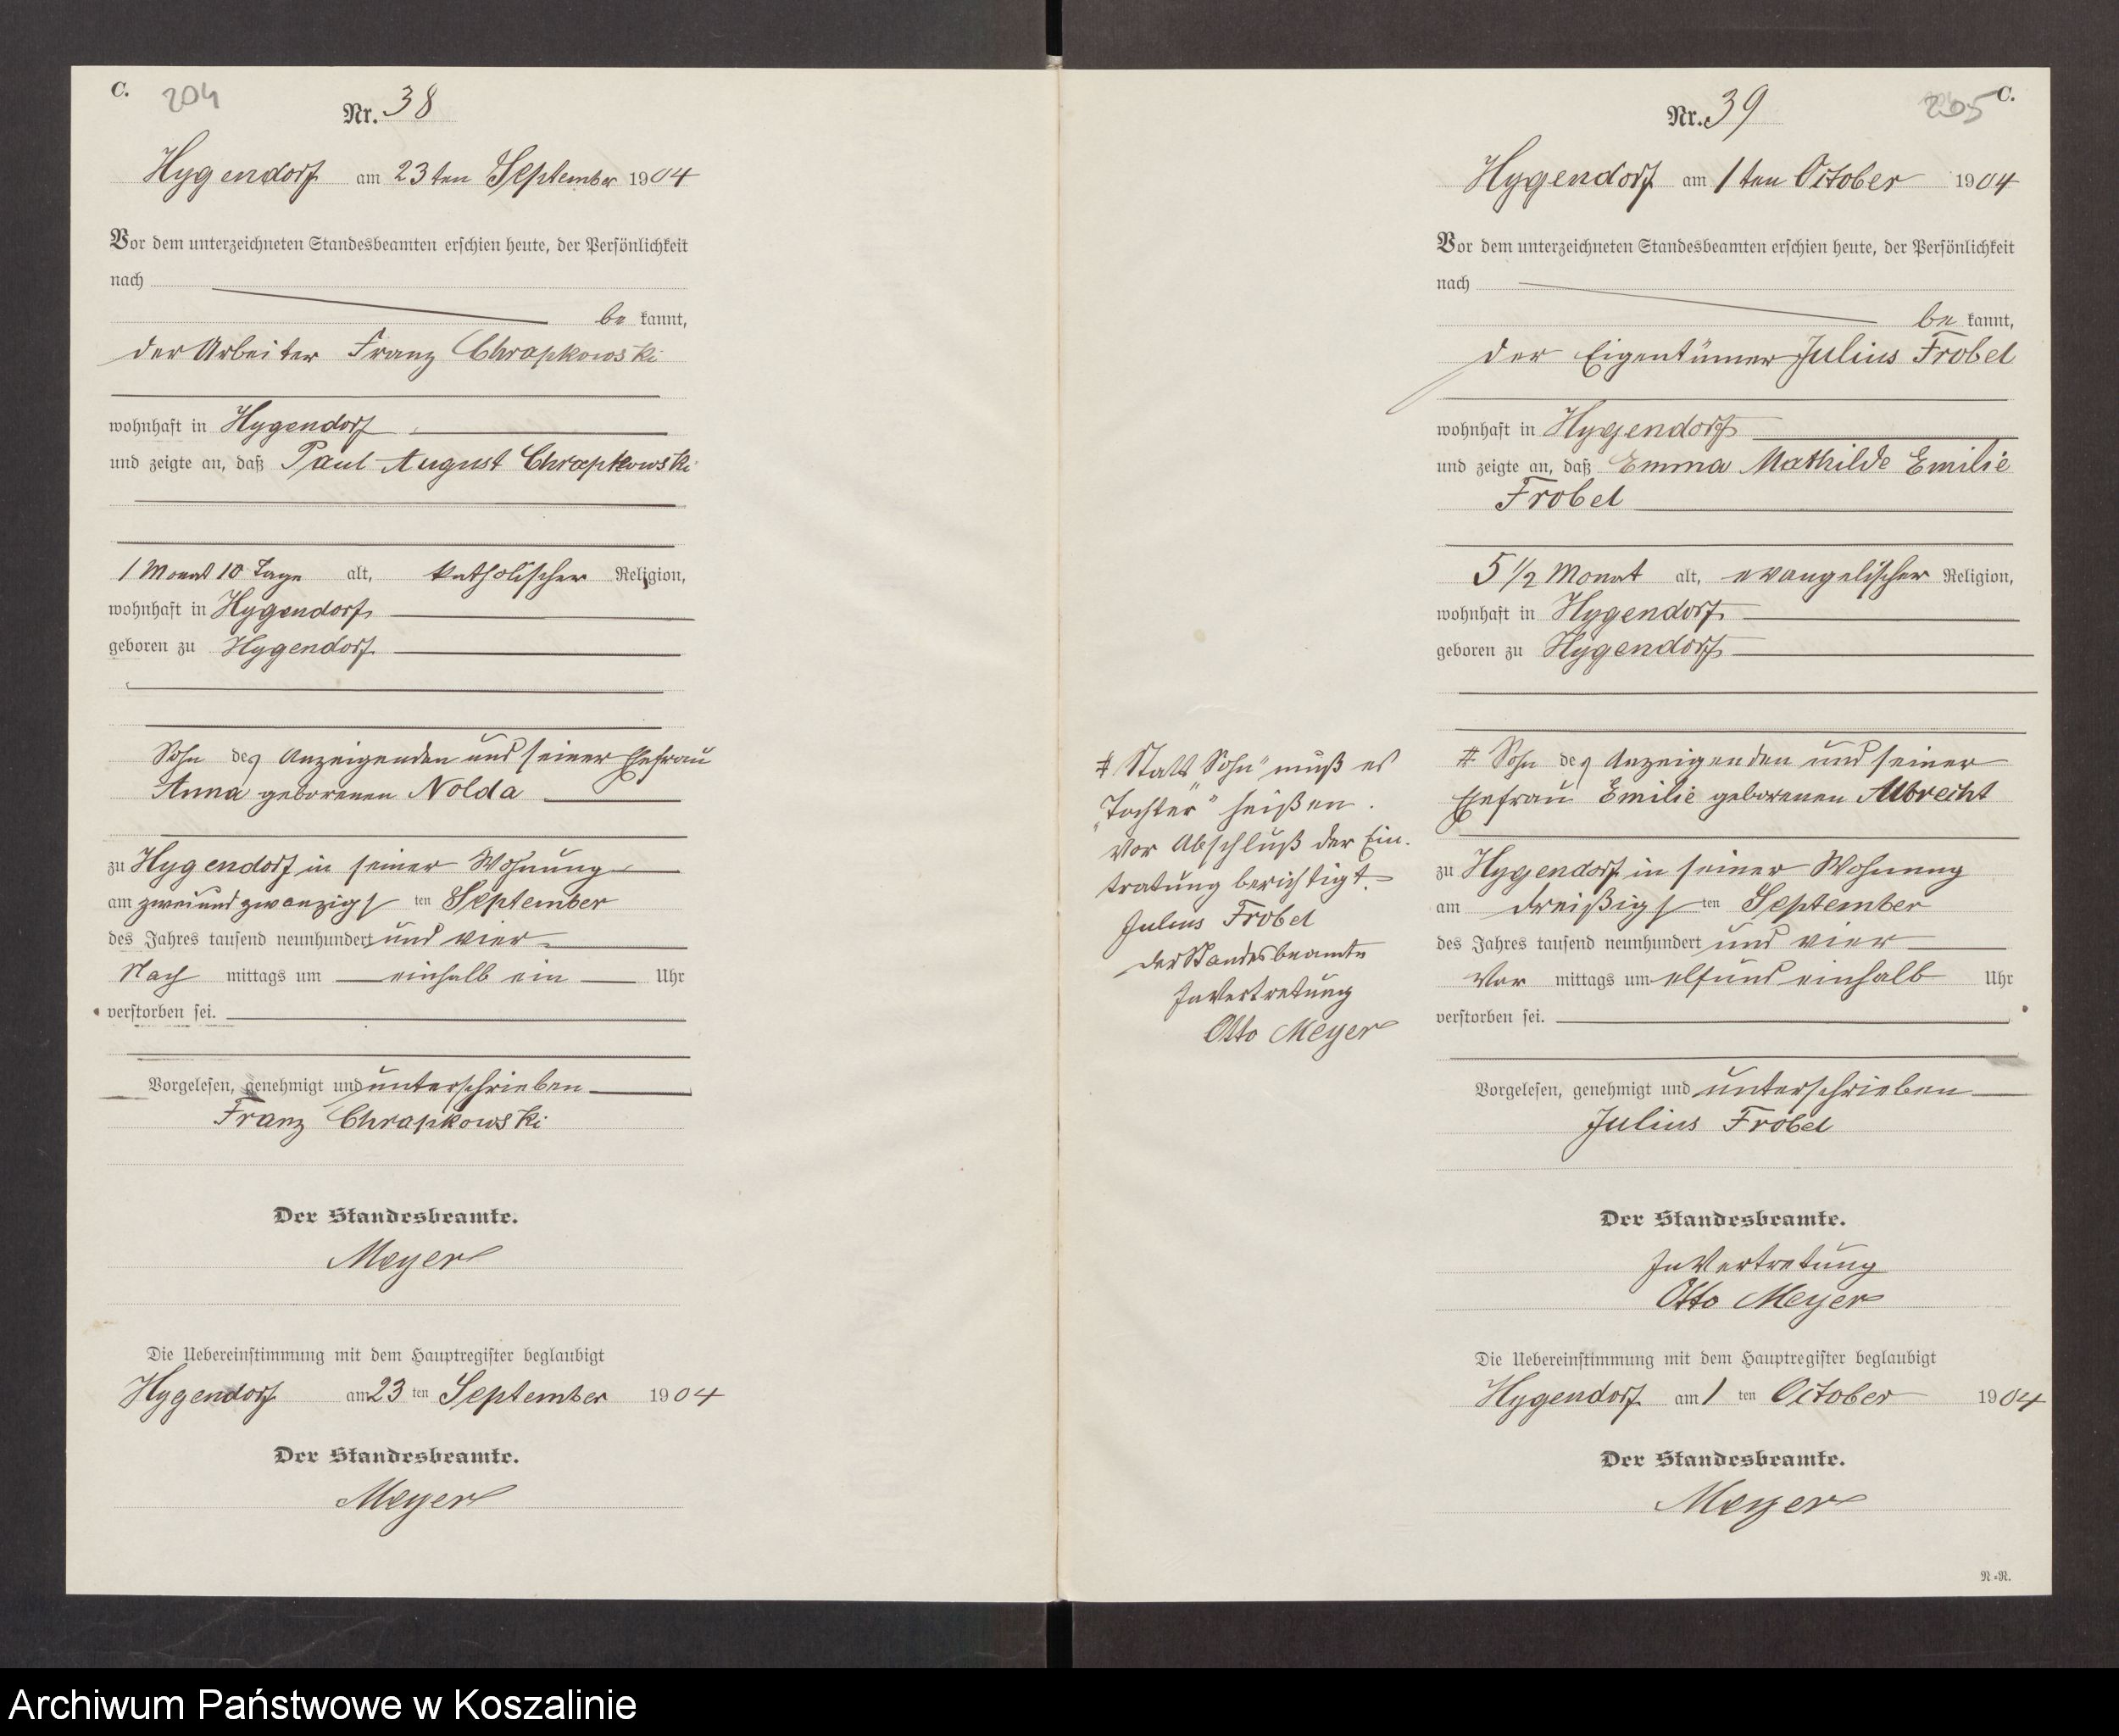 C. 204
Nr. 38
Hygendorf am 23ten September 1904
Vor dem unterzeichneten Standesbeamten erschien heute, der Persönlichkeit
nach
be kannt,
der Arbeiter Franz Chrapkowski
wohnhaft in Hygendorf
und zeigte an, daß Paul August Chrapkowski
1 Monat 10 Tage alt, katholischer Religion,
wohnhaft in Hygendorf
geboren zu Hygendorf
Sohn des Anzeigenden und seiner Ehefrau
Anna geborenen Nolda
zu Hygendorf in seiner Wohnung
am zweiundzwanzigsten September
des Jahres tausend neunhundert und vier
Nach mittags um einhalb ein Uhr
verstorben sei.
Vorgelesen, genehmigt und unterschrieben
Franz Chrapkowski
Der Standesbeamte.
Meyer
Die Uebereinstimmung mit dem Hauptregister beglaubigt
Hygendorf am 23 ten September 1904
Der Standesbeamte.
Meyer
205 C.
Nr. 39
Hygendorf am 1ten October 1904
Vor dem unterzeichneten Standesbeamten erschien heute, der Persönlichkeit
nach
be kannt,
der Eigentümer Julius Frobel
wohnhaft in Hygendorf
und zeigte an, daß Emma Mathilde Emilie
Frobel
5 1/2 Monat alt, evangelischer Religion,
wohnhaft in Hygendorf
geboren zu Hygendorf
# Sohn des Anzeigenden und seiner
Ehefrau Emilie geborenen Albrecht
zu Hygendorf in seiner Wohnung
am dreißigsten September
des Jahres tausend neunhundert und vier
Vor mittags um elfundeinhalb Uhr
verstorben sei.
Vorgelesen, genehmigt und unterschrieben
Julius Frobel
Der Standesbeamte.
In Vertretung
Otto Meyer
Die Uebereinstimmung mit dem Hauptregister beglaubigt
Hygendorf am 1 ten October 1904
Der Standesbeamte.
Meyer
N.-N.
# Statt "Sohn" muß es
"Tochter" heißen.
Vor Abschluß der Ein-
tratung berichtigt.
Julius Frobel
Der Standesbeamte
In Vertretung
Otto Meyer
Archiwum Państwowe w Koszalinie